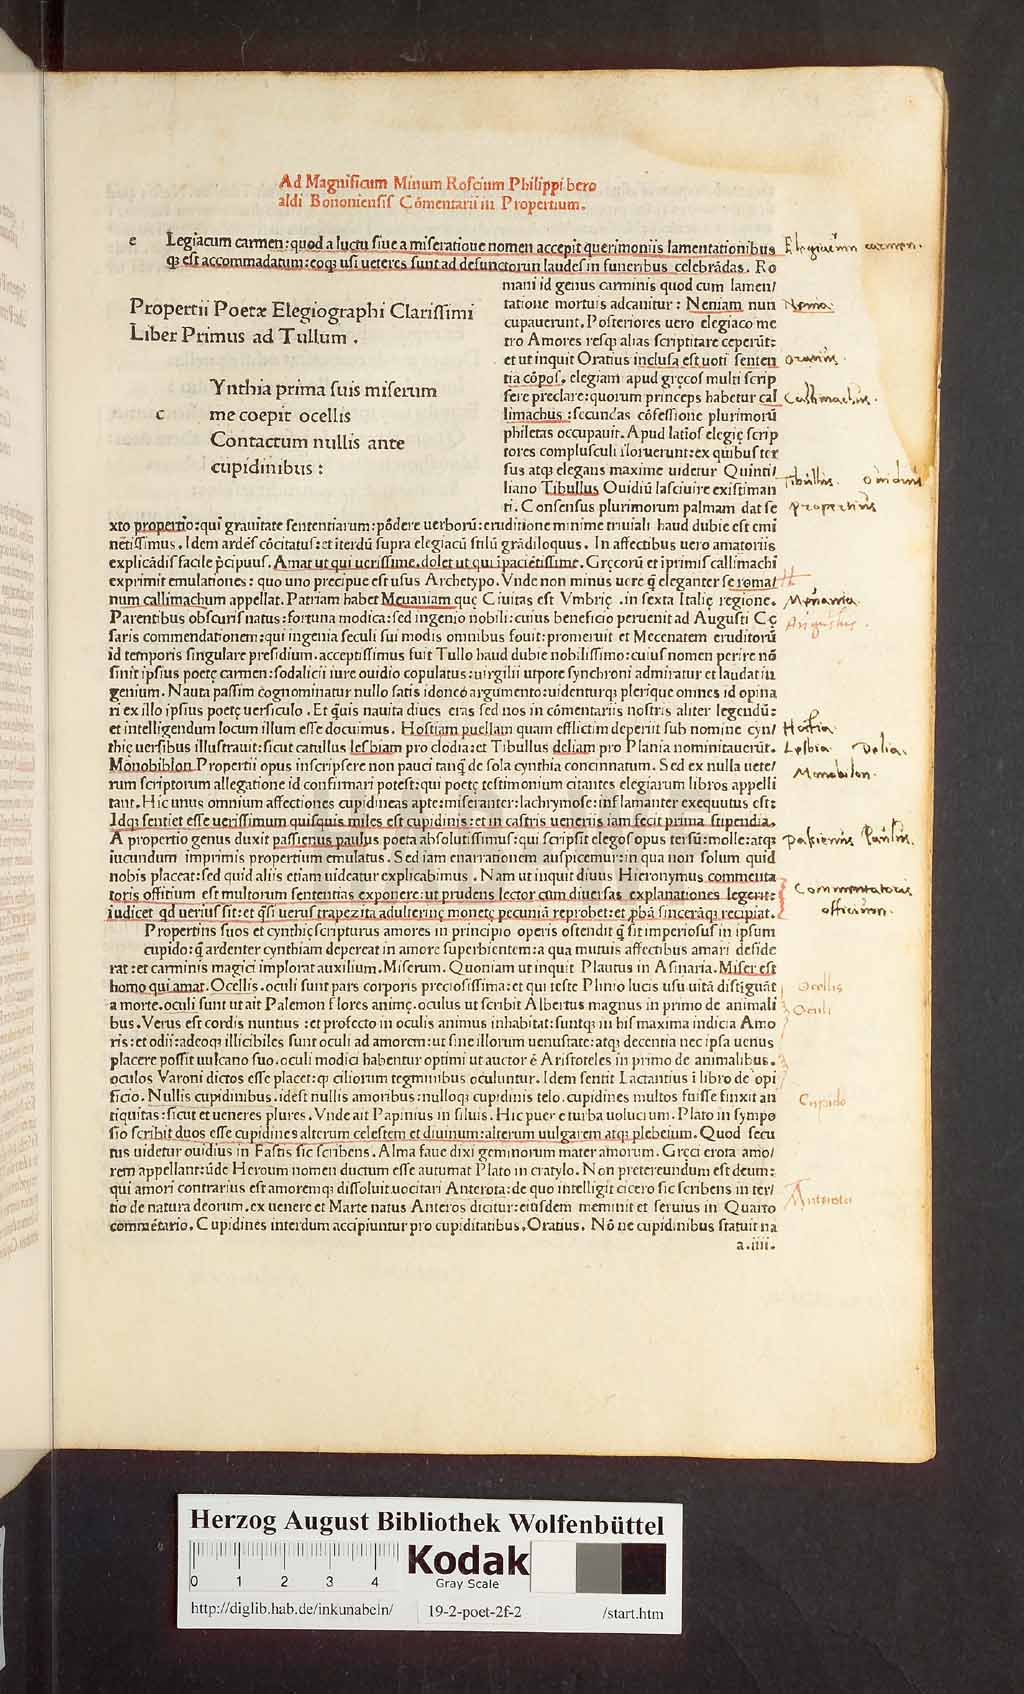 Ad Magnificum Minum Roscium Philippi bero
aldi Bononiensis Cōmentarii in Propertium.
e Legiacum carmen: quod a luctu siue a miseratione nomen accepit querimoniis lamentationibus
qȝ est accommadatum: eoqȝ usi ueteres sunt ad defunctorun laudes in funeribus celebrādas. Ro
mani id genus carminis quod cum lamen/
tatione mortuis adcanitur: Neniam nun
cupauerunt. Posteriores uero elegiaco me
tro Amores resqȝ alias scriptitare ceperūt:
et ut inquit Oratius inclusa est uoti senten
tia cōpos. elegiam apud gręcos multi scrip
sere preclare: quorum princeps habetur cal
limachus: secundas cōfessione plurimorū
philetas occupauit. Apud latīos elegię scrip
tores complusculi floruerunt: ex quibus ter
sus atqȝ elegans maxime uidetur Quinti/
liano Tibullus Ouidiū lasciuire existiman
ti. Consensus plurimorum palmam dat se
Propertii Poetæ Elegiographi Clarissimi
Liber Primus ad Tullum.
c Ynthia prima suis miserum
me coepit ocellis
Contactum nullis ante
cupidinibus:
xto propertio: qui grauitate sententiarum: pōdere uerborū: eruditione minime triuiali haud dubie est emi
nētissimus. Idem ardēs cōcitatus: et īterdū supra elegiacū stilū grādiloquus. In affectibus uero amatoriis
explicādis facile p̄cipuus. Amat ut qui uerissime. dolet ut qui īpaciētissime. Gręcorū et īprimis callimachi
exprimit emulationes: quo uno precipue est usus Archetypo. Vnde non minus uere q̄ eleganter se roma/
num callimachum appellat. Patriam habet Meuaniam quę Ciuitas est Vmbrię. in sexta Italię regione.
Parentibus obscuris natus: fortuna modica: sed ingenio nobili: cuius beneficio peruenit ad Augusti Cę
saris commendationem: qui ingenia seculi sui modis omnibus fouit: promeruit et Mecenatem eruditorū
id temporis singulare presidium. acceptissimus fuit Tullo haud dubie nobilissimo: cuius nomen perire nō
sinit ipsius poetę carmen: sodalicii iure ouidio copulatus: uirgilii utpote synchroni admiratur et laudat in
genium. Nauta passim cognominatur nullo satis idoneo argumento: uidenturqȝ plerique omnes id opina
ri ex illo ipsius poetę uersiculo. Et q̄uis nauita diues eras sed nos in cōmentariis nostris aliter legendū:
et intelligendum locum illum esse docuimus. Hostiam puellam quam efflictim deperiit sub nomine cyn/
thię uersibus illustrauit: sicut catullus lesbiam pro clodia: et Tibullus deliam pro Plania nominitauerūt.
Monobiblon Propertii opus inscripsere non pauci tanq̄ de sola cynthia concinnatum. Sed ex nulla uete/
rum scriptorum allegatione id confirmari potest: qui poetę testimonium citantes elegiarum libros appelli
tant. Hic unus omnium affectiones cupidineas apte: miseranter: lachrymose: inflamanter exequutus est:
Idqȝ sentiet esse uerissimum quisquis miles est cupidinis: et in castris ueneriis iam fecit prima stipendia.
A propertio genus duxit passienus paulus poeta absolutissimus: qui scripsit elegos opus tersū: molle: atqȝ
iucundum imprimis propertium emulatus. Sed iam enarrationem auspicemur: in qua non solum quid
nobis placeat: sed quid aliis etiam uideatur explicabimus. Nam ut inquit diuus Hieronymus commenta
toris offitium est multorum sententias exponere: ut prudens lector cum diuersas explanationes legerit:
iudicet qd uerius sit: et q̄si uerus trapezita adulterinę monetę pecuniā reprobet: et p̄bā sincerāqȝ recipiat.
Propertius suos et cynthię scripturus amores in principio operis ostendit q̄ sit imperiosus in ipsum
cupido: q̄ ardenter cynthiam depereat in amore superbientem: a qua mutuis affectibus amari deside
rat: et carminis magici implorat auxilium. Miserum. Quoniam ut inquit Plautus in Asinaria. Miser est
homo qui amat. Ocellis. oculi sunt pars corporis preciosissima: et qui teste Plinio lucis usu uitā distīguāt
a morte. oculi sunt ut ait Palemon flores animę. oculus ut scribit Albertus magnus in primo de animali
bus. Verus est cordis nuntius: et profecto in oculis animus inhabitat: suntqȝ in his maxima indicia Amo
ris: et odii: adeoqȝ illicibiles sunt oculi ad amorem: ut sine illorum uenustate: atqȝ decentia nec ipsa uenus
placere possit uulcano suo. oculi modici habentur optimi ut auctor ē Aristoteles in primo de animalibus.
oculos Varoni dictos esse placet: qȝ ciliorum tegminibus oculuntur. Idem sentit Lactantius ī libro de opi
ficio. Nullis cupidinibus. idest nullis amoribus: nulloqȝ cupidinis telo. cupidines multos fuisse finxit an
tiquitas: sicut et ueneres plures. Vnde ait Papinius in siluis. Hic puer e turba uolucrum. Plato in sympo
sio scribit duos esse cupidines alterum celestem et diuinum: alterum uulgarem atqȝ plebeium. Quod secu
tus uidetur ouidius in Fastis sic scribens. Alma faue dixi geminorum mater amorum. Gręci erota amo/
rem appellant: ūde Heroum nomen ductum esse autumat Plato in cratylo. Non pretereundum est deum:
qui amori contrarius est amoremqȝ dissoluit uocitari Anterota: de quo intelligit cicero sic scribens in ter/
tio de natura deorum. ex uenere et Marte natus Anteros dicitur: eiusdem meminit et seruius in Quarto
commētario. Cupidines interdum accipiuntur pro cupiditatibus. Oratius. Nō ne cupidinibus statuit na
a.iiii.
Elegiacum carmen.
Nenia.
Oratius.
Callimachus.
Tibullus. Ouidius
propertius
Meuania.
Augustus.
Hostia.
Lesbia Delia.
Monobilon.
passienus Paulus.
Commentatoris
officium.
Ocellis
Oculi
Cupido
Anterota
Herzog August Bibliothek Wolfenbüttel
0 1 2 3 4
Kodak
Gray Scale
http://diglib.hab.de/inkunabeln/ 19-2-poet-2f-2 /start.htm